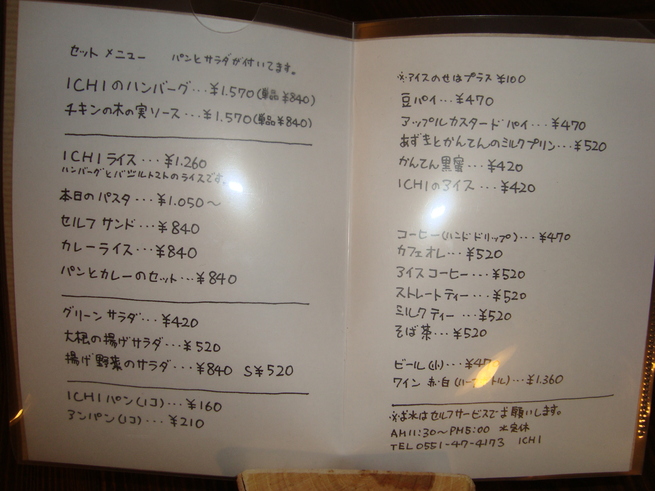 セット メニュー　パンとサラダが付いてます。
ICHIのハンバーグ・・・¥1.570(単品¥840)
チキンの木の実ソース・・・¥1.570(単品¥840)
ICHIライス・・・¥1.260
ハンバーグとバジルトマトのライスです。
本日のパスタ・・・¥1.050〜
セルフ サンド・・・¥840
カレーライス・・・¥840
パンとカレーのセット・・・¥840
グリーンサラダ・・・¥420
大根の揚げサラダ・・・¥520
揚げ野菜のサラダ・・・¥840 S¥520
ICHIパン(1コ)・・・¥160
アンパン(1コ)・・・¥210
※アイスのせはプラス¥100
豆パイ・・・¥470
アップルカスタードパイ・・・¥470
あずきとかんてんのミルクプリン・・・¥520
かんてん黒蜜・・・¥420
ICHIのアイス・・・¥420
コーヒー(ハンドドリップ)・・・¥470
カフェオレ・・・¥520
アイスコーヒー・・・¥520
ストレートティー・・・¥520
ミルクティー・・・¥520
そば茶・・・¥520
ビール(小)・・・¥47
ワイン 赤・白(ハーフボトル)・・・¥1.360
※お水はセルフサービスでお願いします。
AM11:30〜PM5:00 定休
TEL0551-47-4173 ICHI